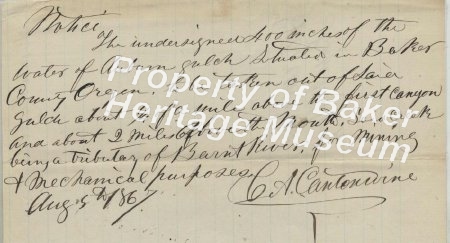 Notice
The undersigned 400 inches of the
water of gulch situated in Baker
County Oregon. taken out of Said
Gulch about mile above the first Canyon
and about 2 miles
being a tributary of Burnt River. For Mining
& Mechanical purposes
Aug 5th 1867
Property of Baker
Heritage Museum